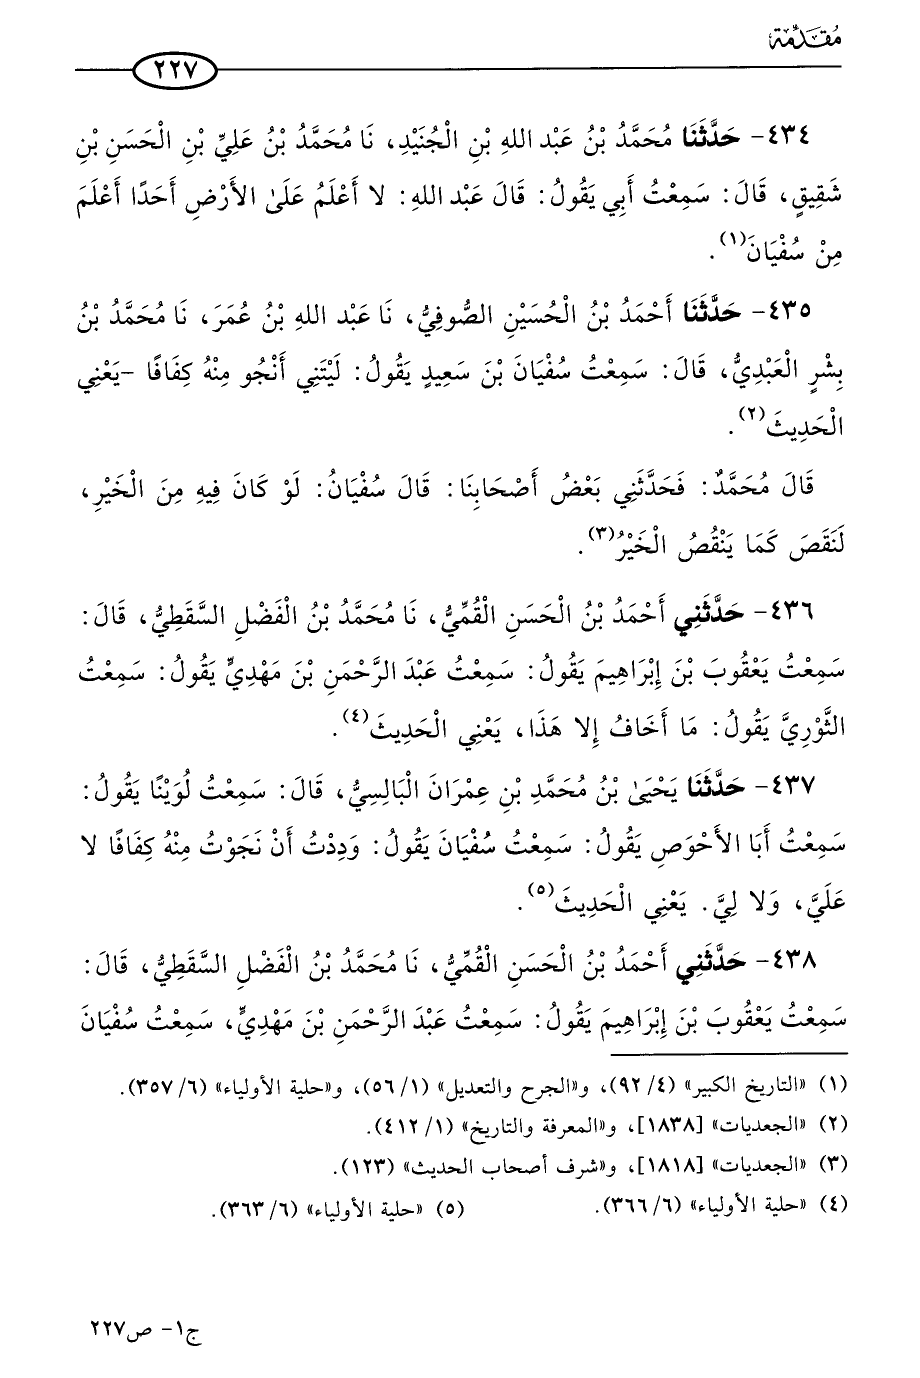 مُقَدِّمَة
٢٢٧
٤٣٤- حَدَّثَنَا مُحَمَّدُ بْنُ عَبْد اللهِ بْنِ الْجُنَيْدِ، نَا مُحَمَّدُ بْنُ عَلِيِّ بْنِ الْحَسَنِ بْنِ
شَقِيقٍ، قَالَ: سَمِعْتُ أَبِي يَقُولُ: قَالَ عَبْد اللهِ: لا أَعْلَمُ عَلَىٰ الأَرْضِ أَحَدًا أَعْلَمَ
مِنْ سُفْيَانَ(١).
٤٣٥- حَدَّثَنَا أَحْمَدُ بْنُ الْحُسَيْنِ الصُّوفِيُّ، نَا عَبْد اللهِ بْنُ عُمَرَ، نَا مُحَمَّدُ بْنُ
بِشْرٍ الْعَبْدِيُّ، قَالَ: سَمِعْتُ سُفْيَانَ بْنَ سَعِيدٍ يَقُولُ: لَيْتَنِي أَنْجُو مِنْهُ كِفَافًا -يَعْنِي
الْحَدِيثَ(٢).
قَالَ مُحَمَّدٌ: فَحَدَّثَنِي بَعْضُ أَصْحَابِنَا: قَالَ سُفْيَانُ: لَوْ كَانَ فِيهِ مِنَ الْخَيْرِ،
لَنَقَصَ كَمَا يَنْقُصُ الْخَيْرُ(٣).
٤٣٦- حَدَّثَنِي أَحْمَدُ بْنُ الْحَسَنِ الْقُمِّيُّ، نَا مُحَمَّدُ بْنُ الْفَضْلِ السَّقَطِيُّ، قَالَ:
سَمِعْتُ يَعْقُوبَ بْنَ إِبْرَاهِيمَ يَقُولُ: سَمِعْتُ عَبْدَ الرَّحْمَنِ بْنَ مَهْدِيٍّ يَقُولُ: سَمِعْتُ
الثَّوْرِيَّ يَقُولُ: مَا أَخَافُ إِلا هَذَا، يَعْنِي الْحَدِيثَ(٤).
٤٣٧- حَدَّثَنَا يَحْيَىٰ بْنُ مُحَمَّدِ بْنِ عِمْرَانَ الْبَالِسِيُّ، قَالَ: سَمِعْتُ لُوَيْنًا يَقُولُ:
سَمِعْتُ أَبَا الأَحْوَصِ يَقُولُ: سَمِعْتُ سُفْيَانَ يَقُولُ: وَدِدْتُ أَنْ نَجَوْتُ مِنْهُ كِفَافًا لا
عَلَيَّ، وَلا لِيَّ. يَعْنِي الْحَدِيثَ(٥).
٤٣٨- حَدَّثَنِي أَحْمَدُ بْنُ الْحَسَنِ الْقُمِّيُّ، نَا مُحَمَّدُ بْنُ الْفَضْلِ السَّقَطِيُّ، قَالَ:
سَمِعْتُ يَعْقُوبَ بْنَ إِبْرَاهِيمَ يَقُولُ: سَمِعْتُ عَبْدَ الرَّحْمَنِ بْنَ مَهْدِيٍّ، سَمِعْتُ سُفْيَانَ
(١) «التاريخ الكبير» (٤/ ٩٢)، و«الجرح والتعديل» (١/ ٥٦)، و«حلية الأولياء» (٦/ ٣٥٧).
(٢) «الجعديات» [١٨٣٨]، و«المعرفة والتاريخ» (١/ ٤١٢).
(٣) «الجعديات» [١٨١٨]، و«شرف أصحاب الحديث» (١٢٣).
(٤) «حلية الأولياء» (٦/ ٣٦٦). (٥) «حلية الأولياء» (٦/ ٣٦٣).
ج١- ص٢٢٧